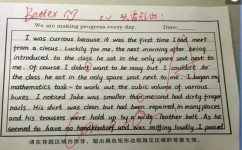 Better
We are making progress every day. Date:
I was curious because it was the first time I had met
from a circus. Luckily for me, the next morning after being
introduced to the class he sat in the only spare seat next to
me. Of course I didn't want to be nosy but I couldn't to
the class he sat in the only spare seat next to me. I began my
mathematics task - to work out the cubic volume of various
boxes. I noticed Jake was smaller than me and had dirty finger
nails. His shirt was clean but had been repaired in many places
and his trousers were held up by a belt. As he
seemed to have no handkerchief and was sniffing loudly, I passed
请在各题区域内作答，超出黑色矩形边框限定区域的答案无效。